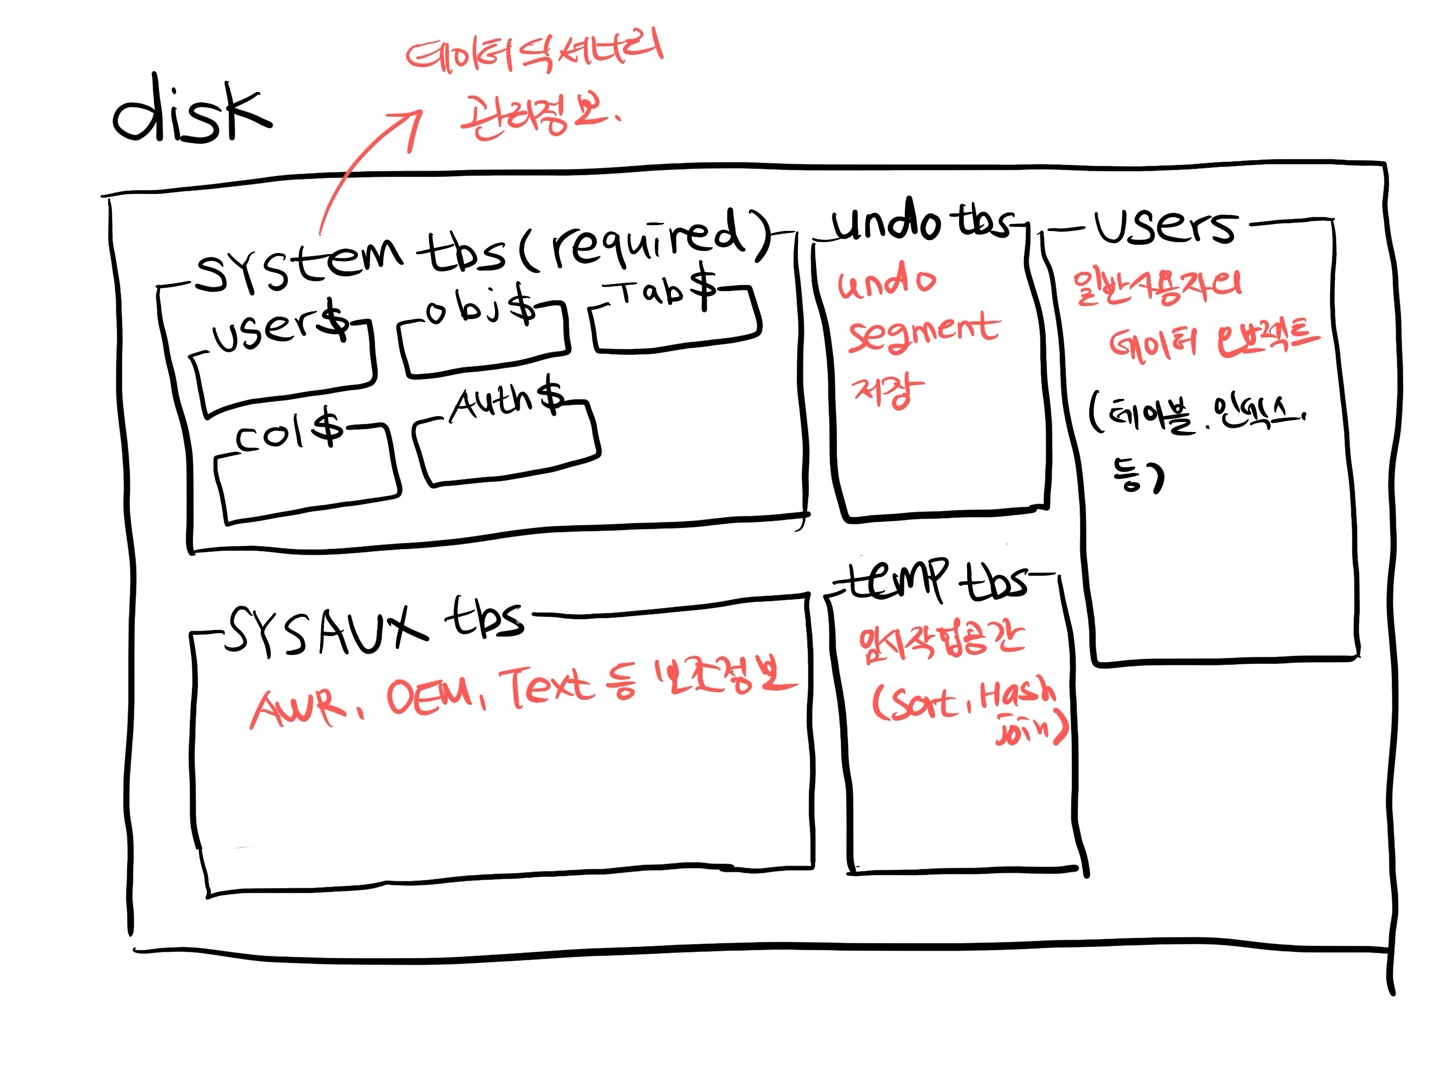 데이터 딕셔너리
관리정보.
disk
system tbs (required)
user$
obj$
Tab$
col$
Auth$
undo tbs
undo
segment
저장
users
일반사용자의
데이터 오브젝트
(테이블, 인덱스,
등)
SYSAUX tbs
AWR, OEM, Text 등 보조정보
temp tbs
임시작업공간
(Sort, Hash
join)